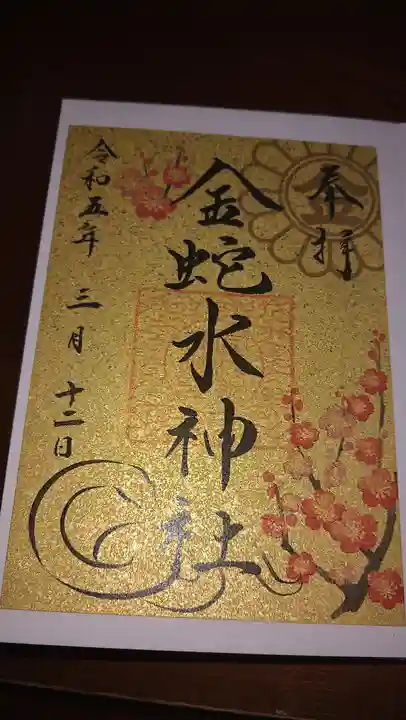 奉拝
金蛇水神社
令和五年 三月 十二日